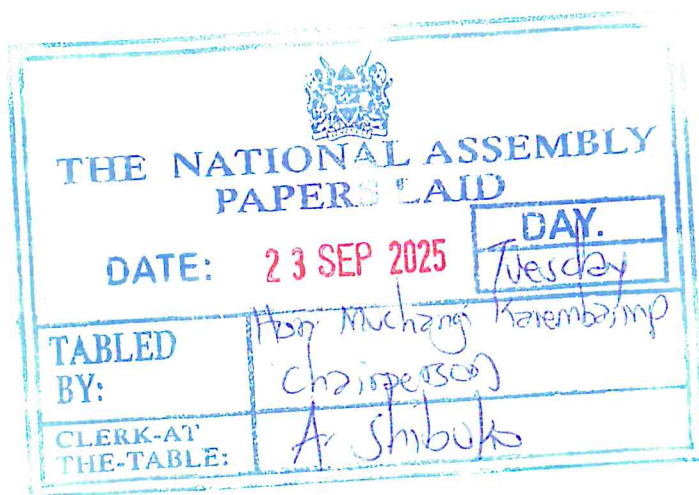 THE NATIONAL ASSEMBLY
PAPERS LAID
DATE: 23 SEP 2025
DAY.
Tuesday
TABLED BY:
Hon Muchangi Karemba, mp
Chairperson
CLERK-AT THE-TABLE:
A. Shibuko